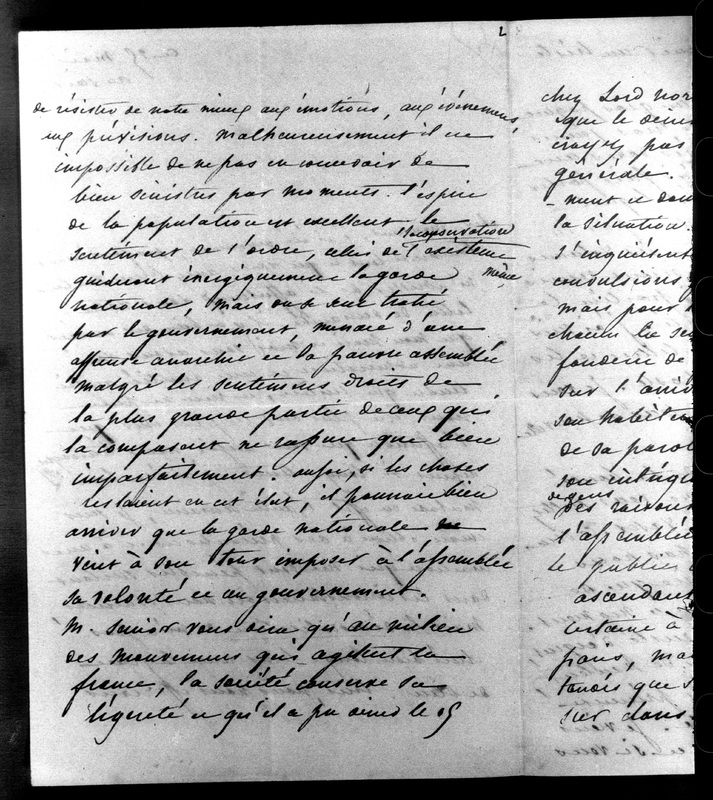 2
de résister de notre mieux aux émotions, aux événemens,
aux prévisions. malheureusement il est
impossible de ne pas en concevoir de
bien sinistres par moments. l'esprit
de la population est excellent, le
sentiment de l'ordre, celui de l'existence
la conservation
même
guideront énergiquement la garde
nationale, mais on se sent trahi
par le gouvernement, menacé d'une
affreuse anarchie et la pauvre assemblée
malgré les sentimens droits de
la plus grande partie de ceux qui
la composent ne rassure que bien
imparfaitement. aussi, si les choses
restaient en cet état, il pourrait bien
arriver que la garde nationale
vint à son tour imposer à l'assemblée
sa volonté et au gouvernement.
M. Senior vous dira qu'au milieu
des mouvemens qui agitent la
france, la société conserve sa
légèreté et qu'il a pu diner le 15
chez Lord Nor
que le
croyez pas
générale.
-ment et dan
la situation.
s'inquiètent
convulsions
mais pour
chacun
fond et de
sur l'
son
de sa parol
son intrigue
de gens
des raisons
l'assemblée
le public
ascendant
certaine à
paris, mai
tandis que
sur dans